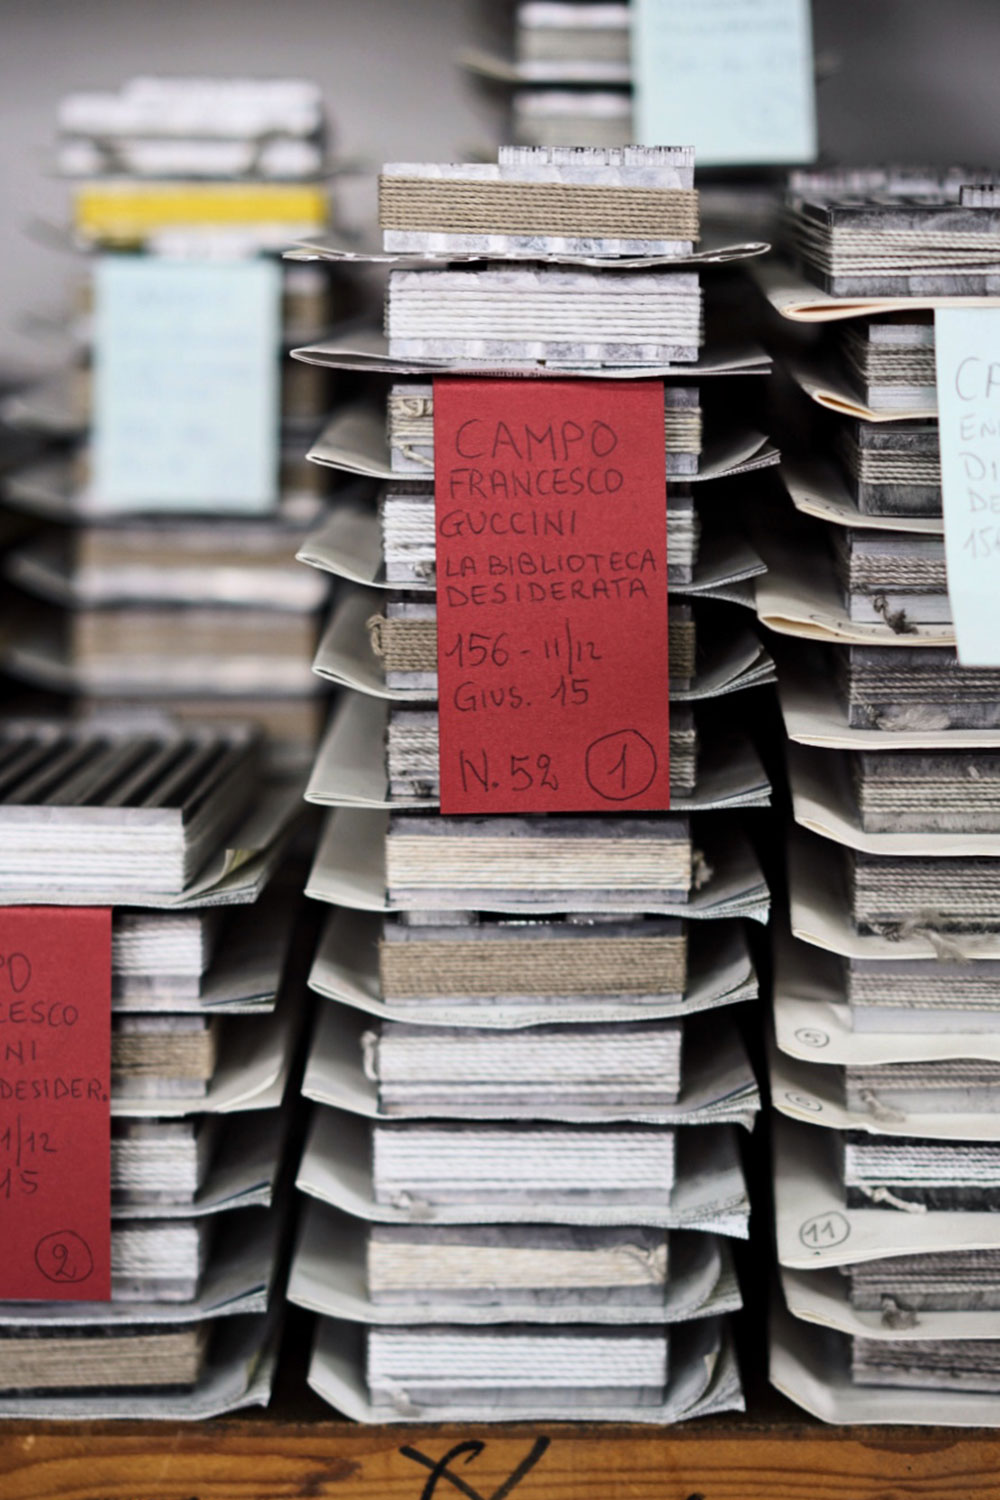 CAMPO
FRANCESCO
GUCCINI
LA BIBLIOTECA
DESIDERATA
156 - 11/12
GIUS. 15
N. 52 1
PO
CESCO
NI
DESIDER.
1/12
15
2
CA
EN
DI
DE
15
5
6
11
XV